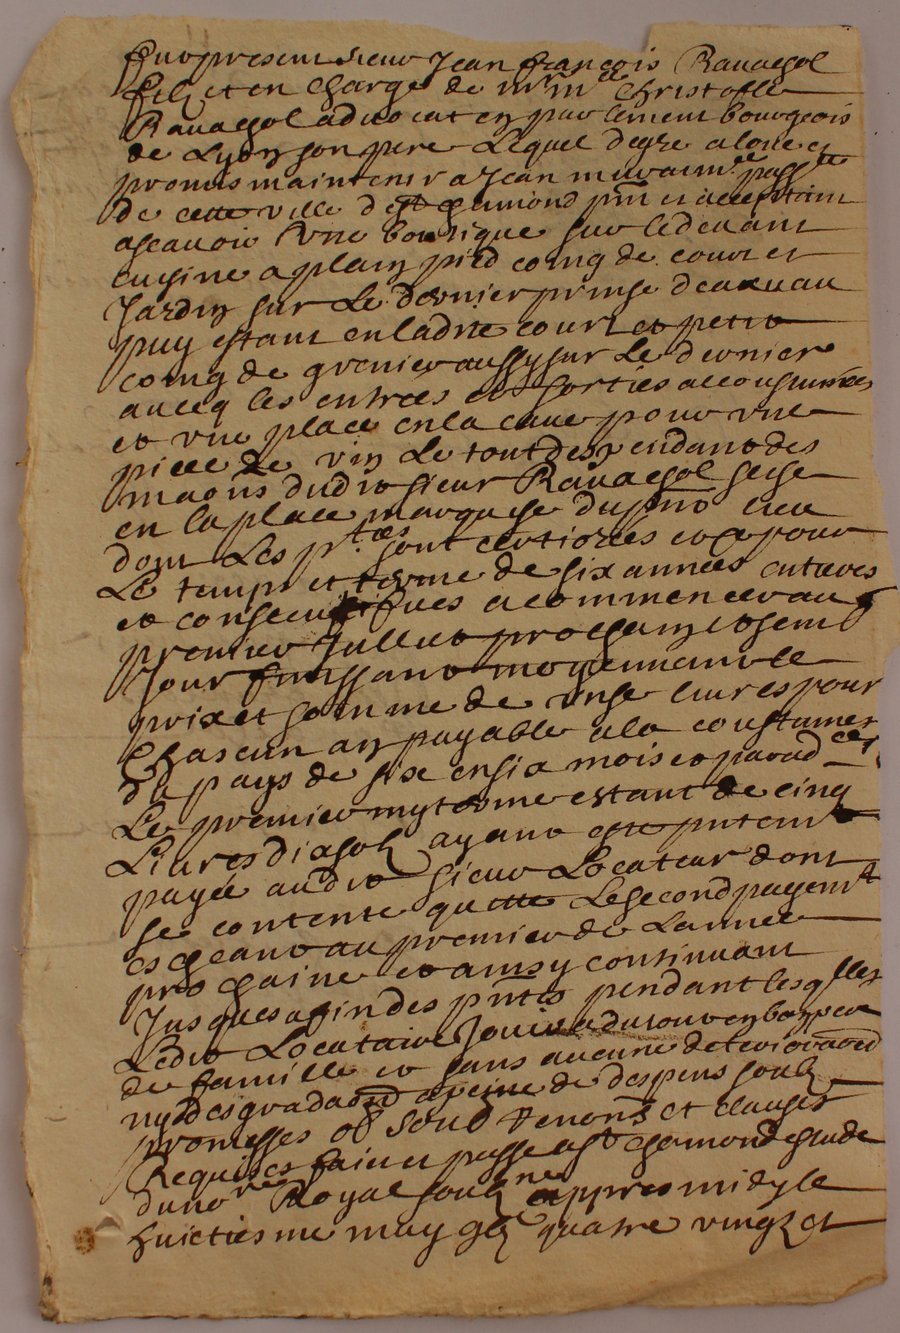 fut present sieur Jean françois Ravachol
filz et en charge de Mre Christofle
Ravachol advocat en parlement bourgeois
de Lyon son pere Lequel degre a loue et
promis maintenir a Jean passtr
de cette ville dest chamond pnt et acceptant
ascavoir Une boutique sur le devant
cuisine a plain pied coing de court et
Jardin sur Le dernier prinse deau au
puy estant en ladite court et petit
coing de grenier aussy sur Le dernier
avecq les entrées et sorties accoustumées
et une place en la cave pour une
piece de vin Le tout despendant des
maons dudt sieur Ravachol scise
en la place marquise du pnt lieu
dont Les ptes sont certiorées et ce pour
Le temps et terme de six années entieres
et consecutifves a commencer au
premier Jullet prochain et semb
Jour finissant moyennant le
prix et somme de unse livres pour
Chascun an payable a la coustume
du pays de six en six mois et par adce
Le premier my terme estant de cinq
Livres dix solz ayant este putemt
payée audt sieur Locateur dont
se contente quitte Le second payemt
escheant au premier de Lannée
prochaine et ainsy continuant
Jusques a fin des pntes pendant lesqlles
Ledt Locataire Jouira du tout en bon pere
de famille et sans aucune deterioraon
ny desgradaon a peine de despens soubz
promesses ob soub renons et clauses
Requises fait et passe a st chamond estude
du nore Royal soubzne appres midy le
huictiesme may gbj quatre vingtz et